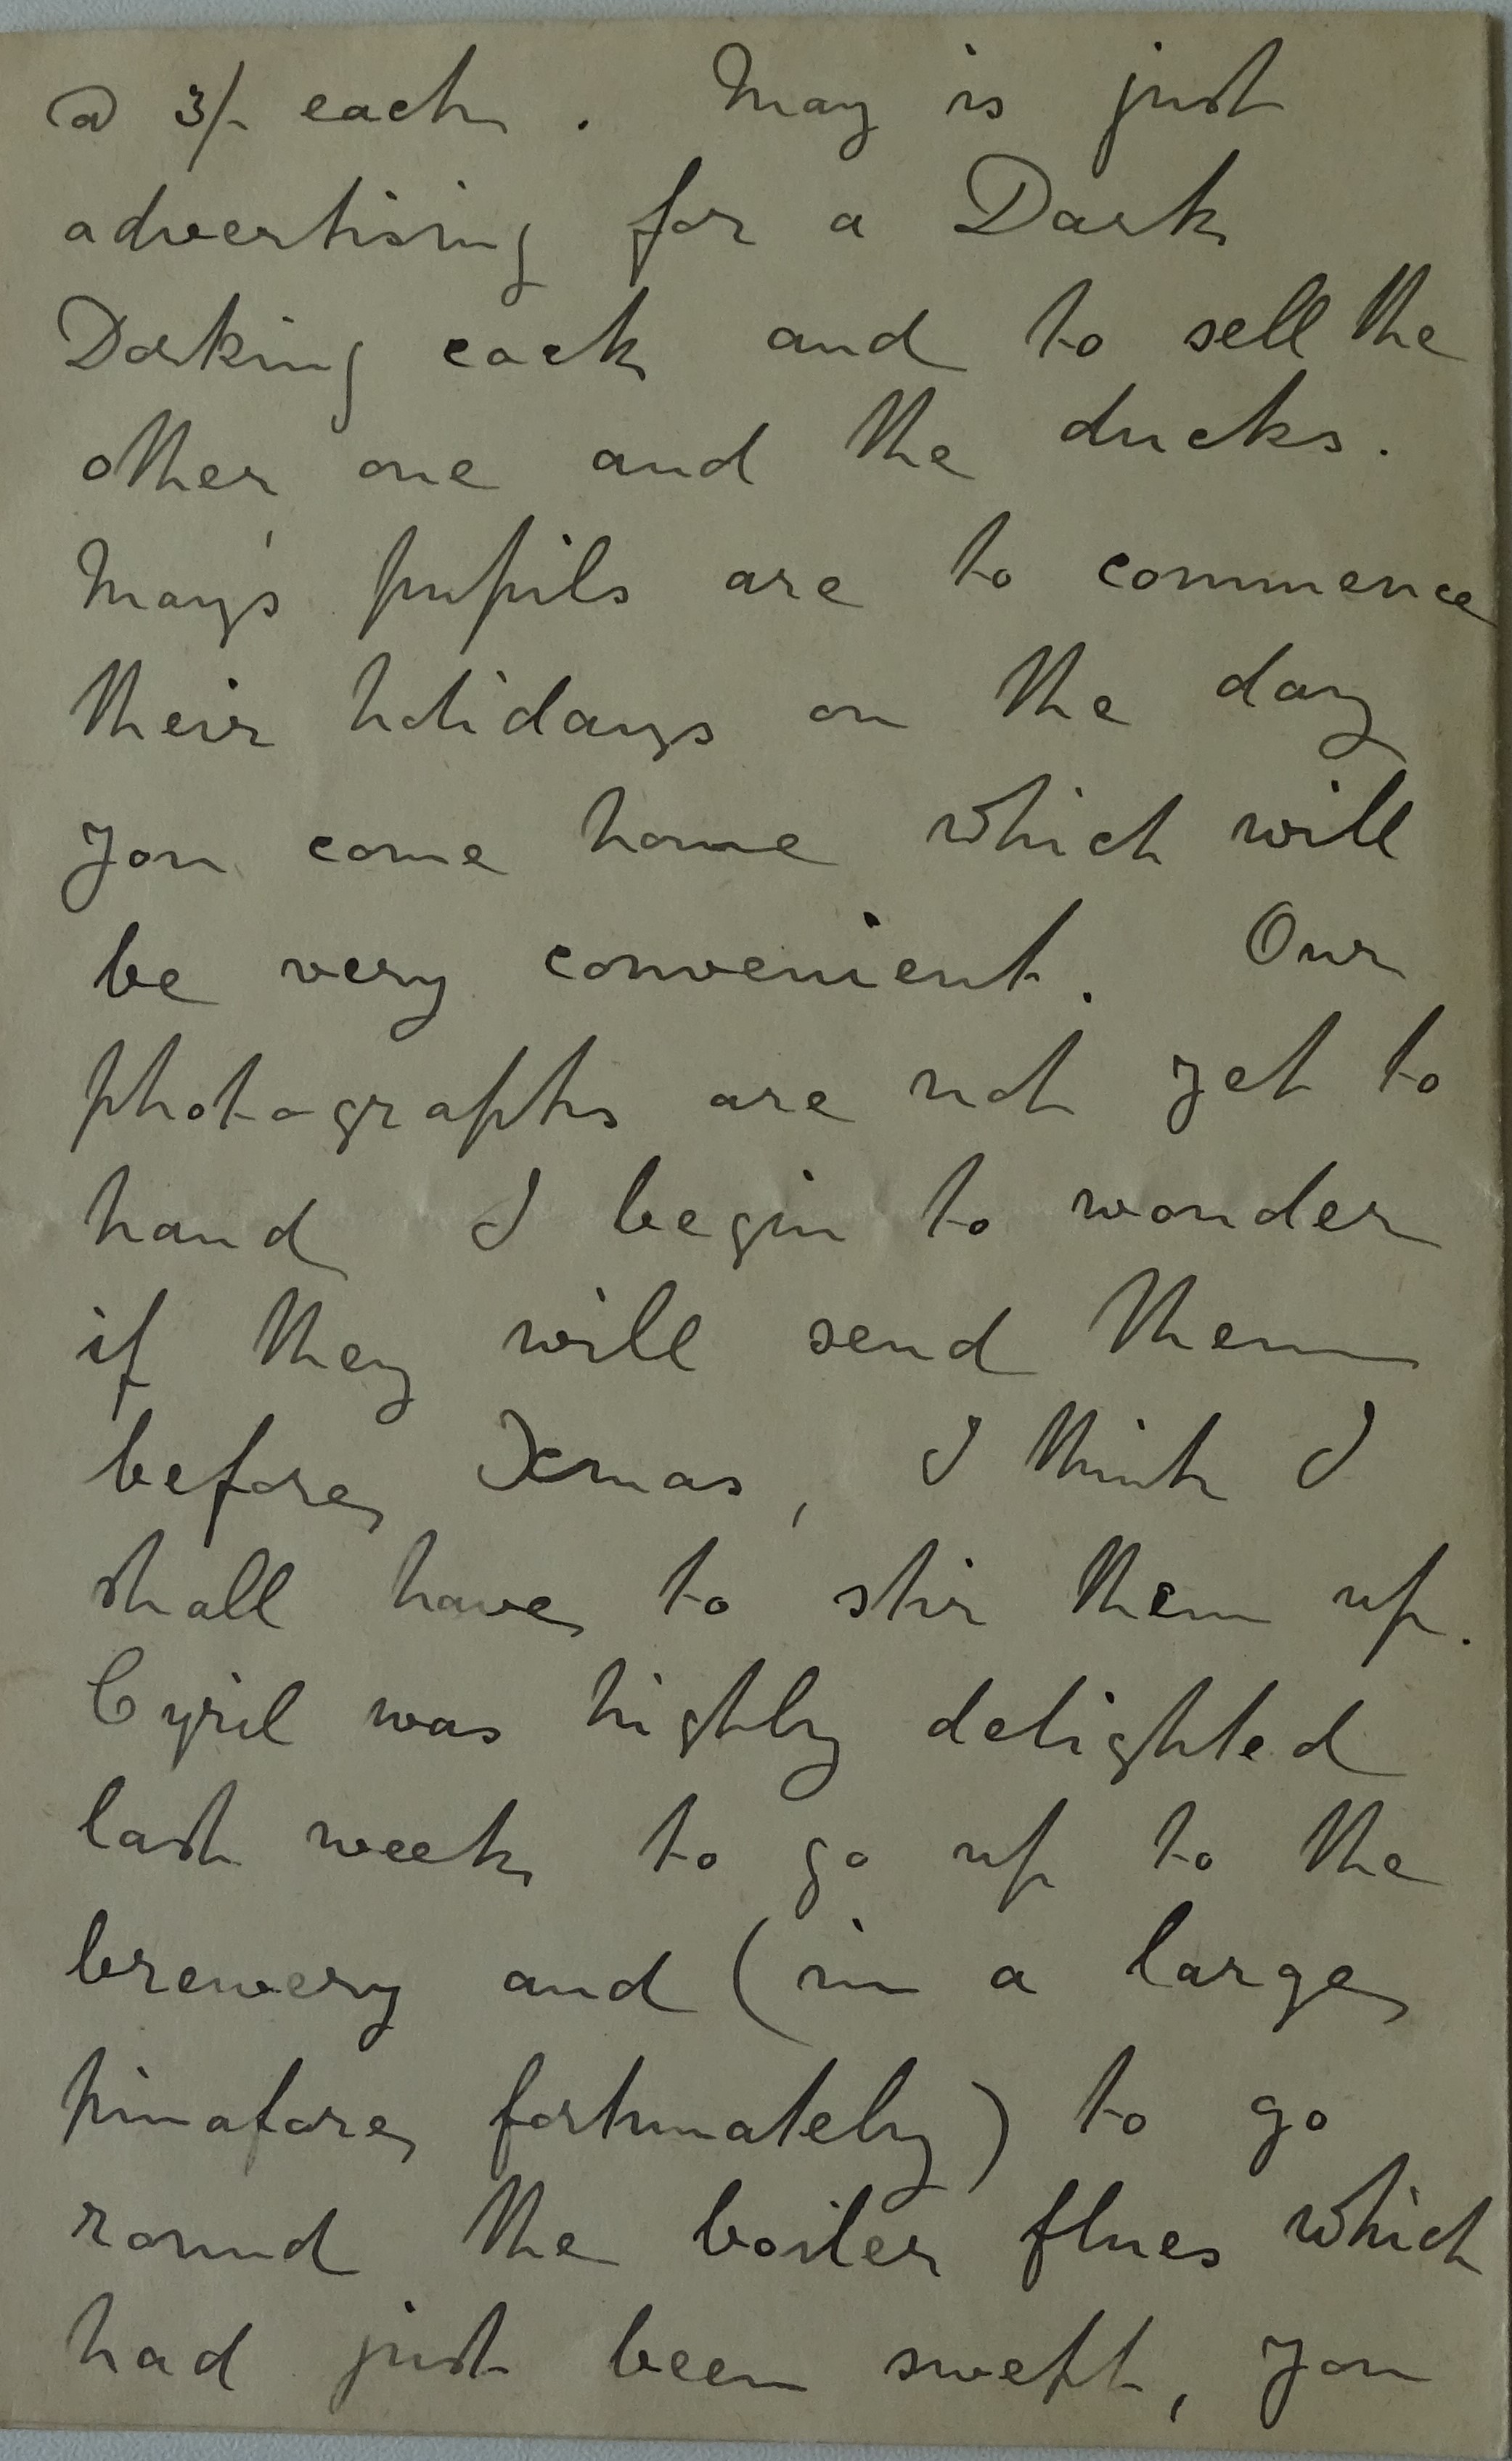 @ 3/- each. May is just
advertising for a Dark
Dorking cock and to sell the
other one and the ducks.
May's pupils are to commence
their holidays on the day
you come home which will
be very convenient. Our
photographs are not yet to
hand I begin to wonder
if they will send them
before Xmas, I think I
shall have to stir them up.
Cyril was highly delighted
last week to go up to the
brewery and (in a large
pinafore, fortunately) to go
round the boiler flues which
had just been swept, you